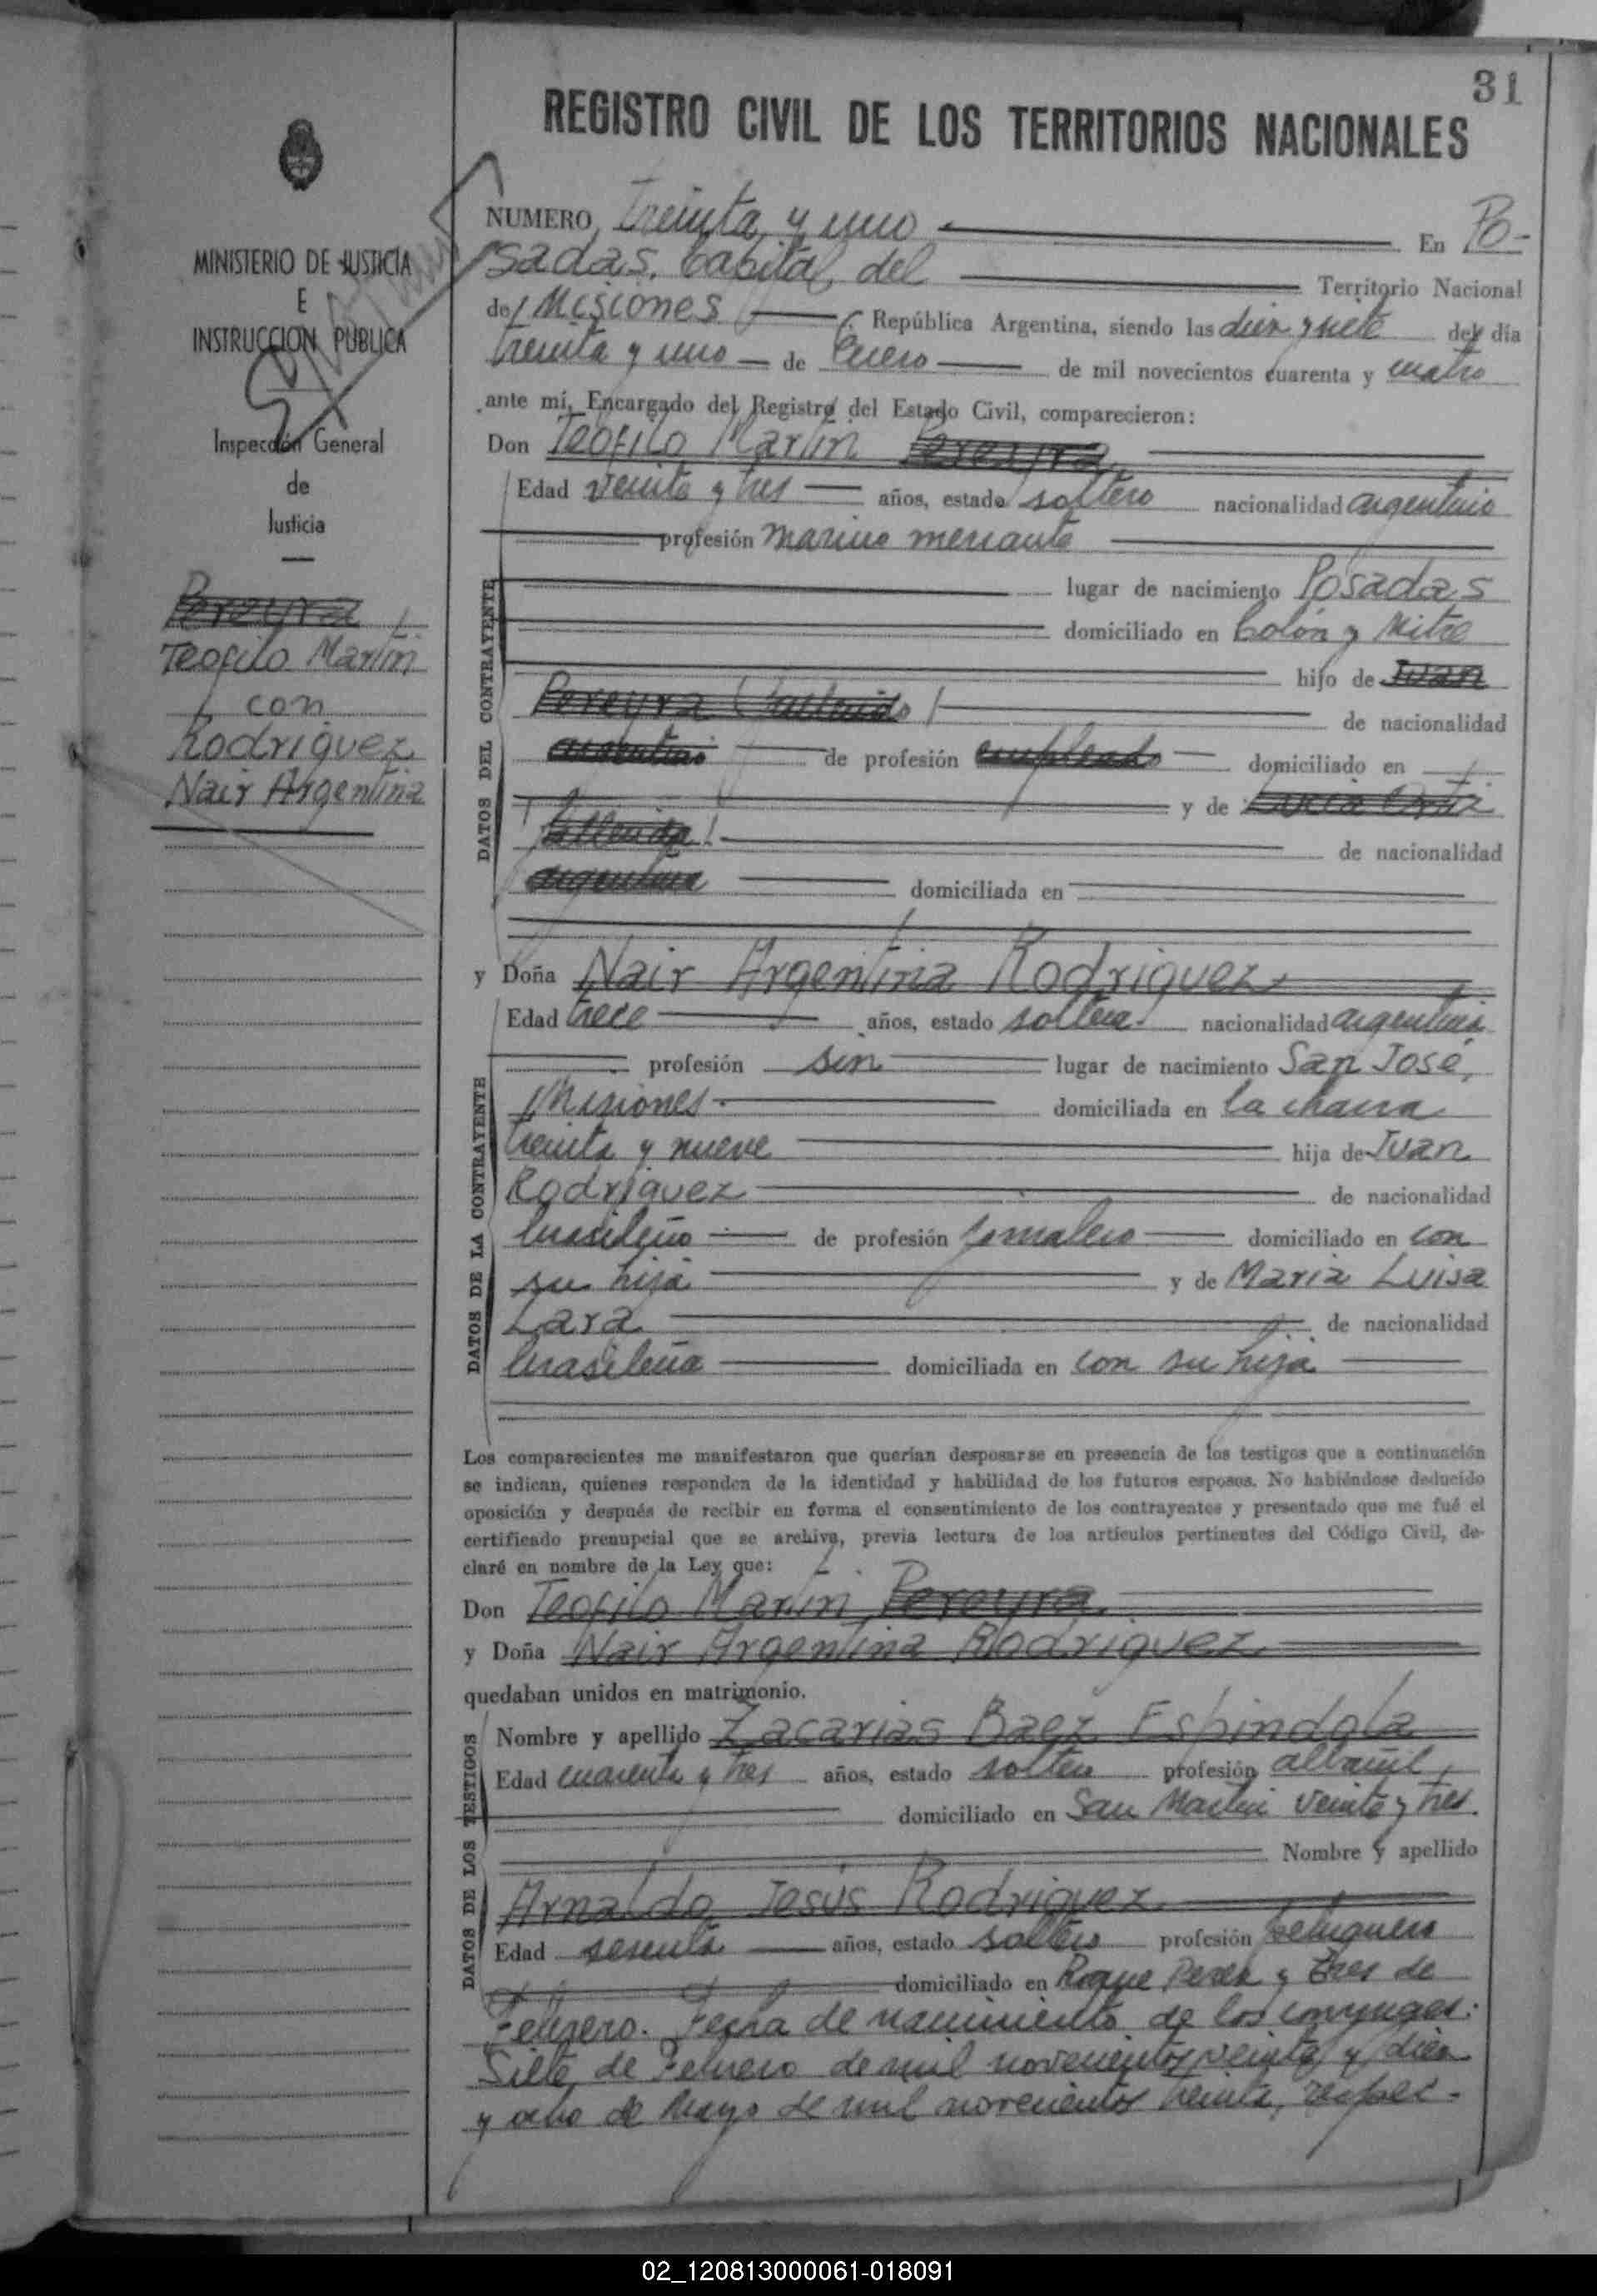 31
REGISTRO CIVIL DE LOS TERRITORIOS NACIONALES
MINISTERIO DE JUSTICIA
E
INSTRUCCION PUBLICA
Inspección General
de
Justicia
Pereyra
Teofilo Martin
con
Rodriguez
Nair Argentina
NUMERO Treinta y uno En Po-
sadas, Capital del Territorio Nacional
de Misiones República Argentina, siendo las diez y siete del día
treinta y uno de Enero de mil novecientos cuarenta y cuatro
ante mí, Encargado del Registro del Estado Civil, comparecieron:
Don Teofilo Martin Pereyra
Edad veinte y tres años, estado soltero nacionalidad argentino
profesión marino mercante
lugar de nacimiento Posadas
domiciliado en Colón y Mitre
hijo de Juan
Pereyra (fallecido)
de nacionalidad
argentino de profesión empleado domiciliado en
y de Lucia Ortiz
fallecida
de nacionalidad
argentina domiciliada en
y Doña Nair Argentina Rodriguez
Edad trece años, estado soltera nacionalidad argentina
profesión sin lugar de nacimiento San José,
Misiones. domiciliada en la chacra
treinta y nueve hija de Juan
Rodriguez de nacionalidad
brasileño de profesión jornalero domiciliado en con
su hija y de Maria Luisa
Lara de nacionalidad
brasileña domiciliada en con su hija
DATOS DEL CONTRAYENTE
DATOS DE LA CONTRAYENTE
Los comparecientes me manifestaron que querían desposarse en presencia de los testigos que a continuación
se indican, quienes responden de la identidad y habilidad de los futuros esposos. No habiéndose deducido
oposición y después de recibir en forma el consentimiento de los contrayentes y presentado que me fué el
certificado prenupcial que se archiva, previa lectura de los artículos pertinentes del Código Civil, de-
claré en nombre de la Ley que:
Don Teofilo Martin Pereyra
y Doña Nair Argentina Rodriguez
quedaban unidos en matrimonio.
DATOS DE LOS TESTIGOS
Nombre y apellido Zacarias Baez Espindola
Edad cuarenta y tres años, estado soltero profesión albañil,
domiciliado en San Martin veinte y tres.
Nombre y apellido
Arnaldo Jesús Rodriguez
Edad sesenta años, estado soltero profesión peluquero
domiciliado en Roque Perez y tres de
Febrero. Fecha de nacimiento de los conyuges:
Siete de Febrero de mil novecientos veinte y diez
y ocho de Mayo de mil novecientos treinta, respec-
02_120813000061-018091